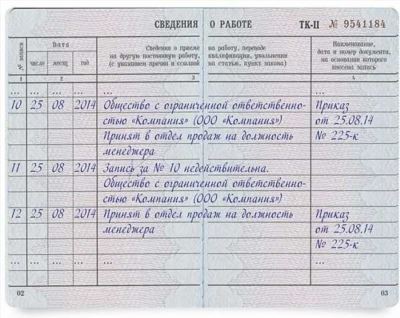 СВЕДЕНИЯ О РАБОТЕ ТК-II № 9541184
№ записи
Дата
число
месяц
год
Сведения о приеме на работу, переводе
на другую постоянную работу, квалификации, увольнении
(с указанием причин и ссылкой на статью, пункт закона)
Наименование,
дата и номер документа,
на основании которого
внесена запись
1 2 3 4
... ... ... ...
10 25 08 2014 Общество с ограниченной ответственно- Приказ
стью «Компания» (ООО «Компания») от 25.08.14
Принят в отдел продаж на должность № 225-к
менеджера
11 25 08 2014 Запись за № 10 недействительна.
Общество с ограниченной ответственно-
стью «Компания» (ООО «Компания»)
12 25 08 2014 Принят в отдел продаж на должность Приказ
менеджера от 25.08.14
№ 225-к
... ... ... ...
02 03